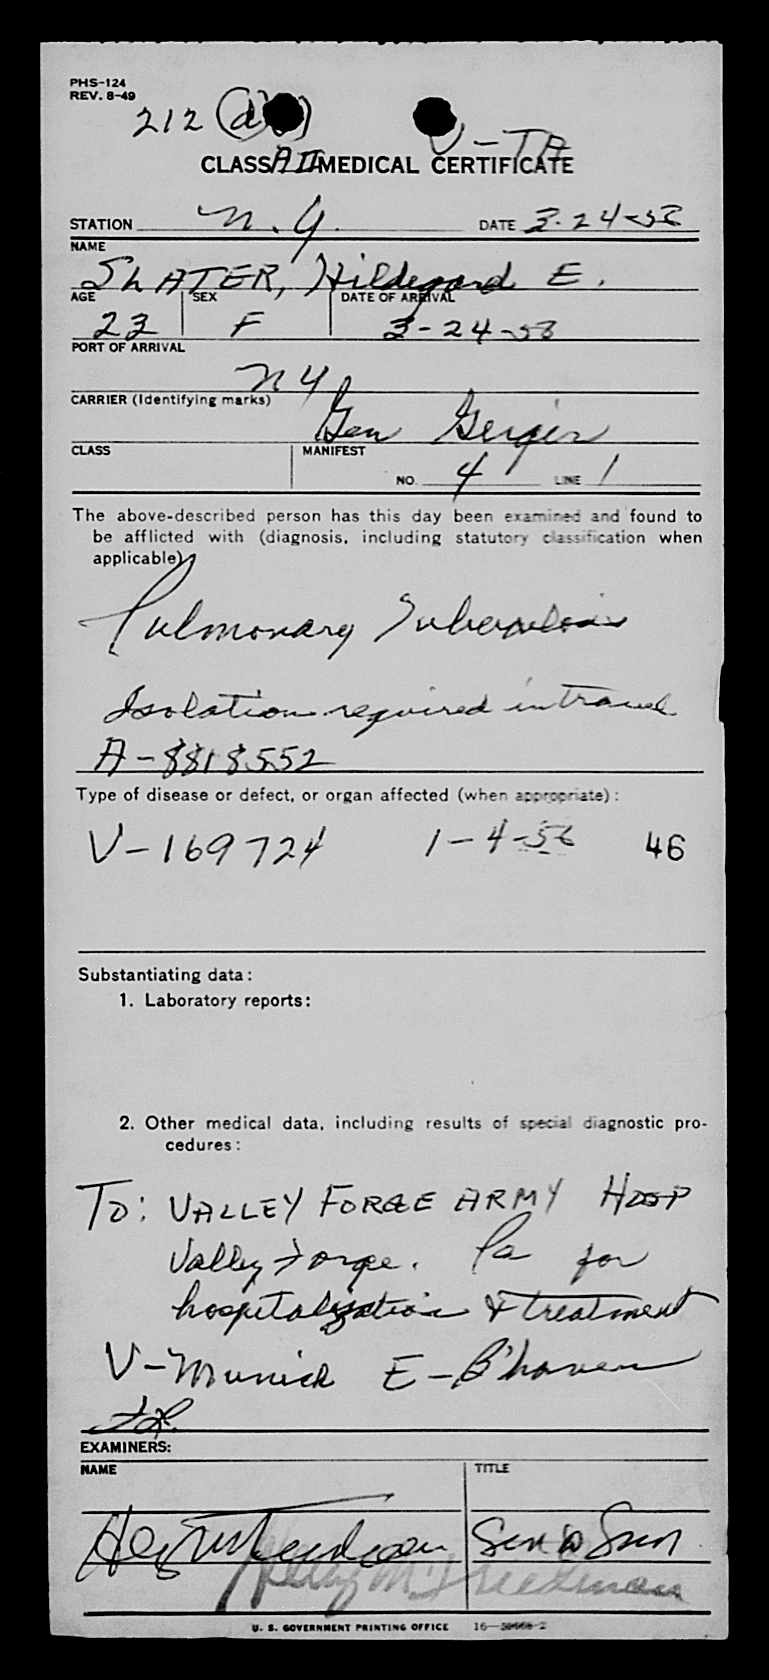 PHS-124
REV. 8-49
212 (d)
V-TB
CLASS A II MEDICAL CERTIFICATE
STATION N.Y. DATE 3-24-53
NAME
SLATER, Hildegard E.
AGE SEX DATE OF ARRIVAL
23 F 3-24-53
PORT OF ARRIVAL
NY
CARRIER (Identifying marks)
Gen Geiger
CLASS MANIFEST
NO. 4 LINE 1
The above-described person has this day been examined and found to
be afflicted with (diagnosis, including statutory classification when
applicable)
Pulmonary Tuberculosis
Isolation required in travel
A-8818552
Type of disease or defect, or organ affected (when appropriate):
V-169724 1-4-56 46
Substantiating data:
1. Laboratory reports:
2. Other medical data, including results of special diagnostic pro-
cedures:
TO: VALLEY FORGE ARMY HOSP
Valley Forge. Pa for
hospitalization & treatment
V-Munich E-B'haven
EXAMINERS:
NAME TITLE
Sen a Surn
U. S. GOVERNMENT PRINTING OFFICE 16-